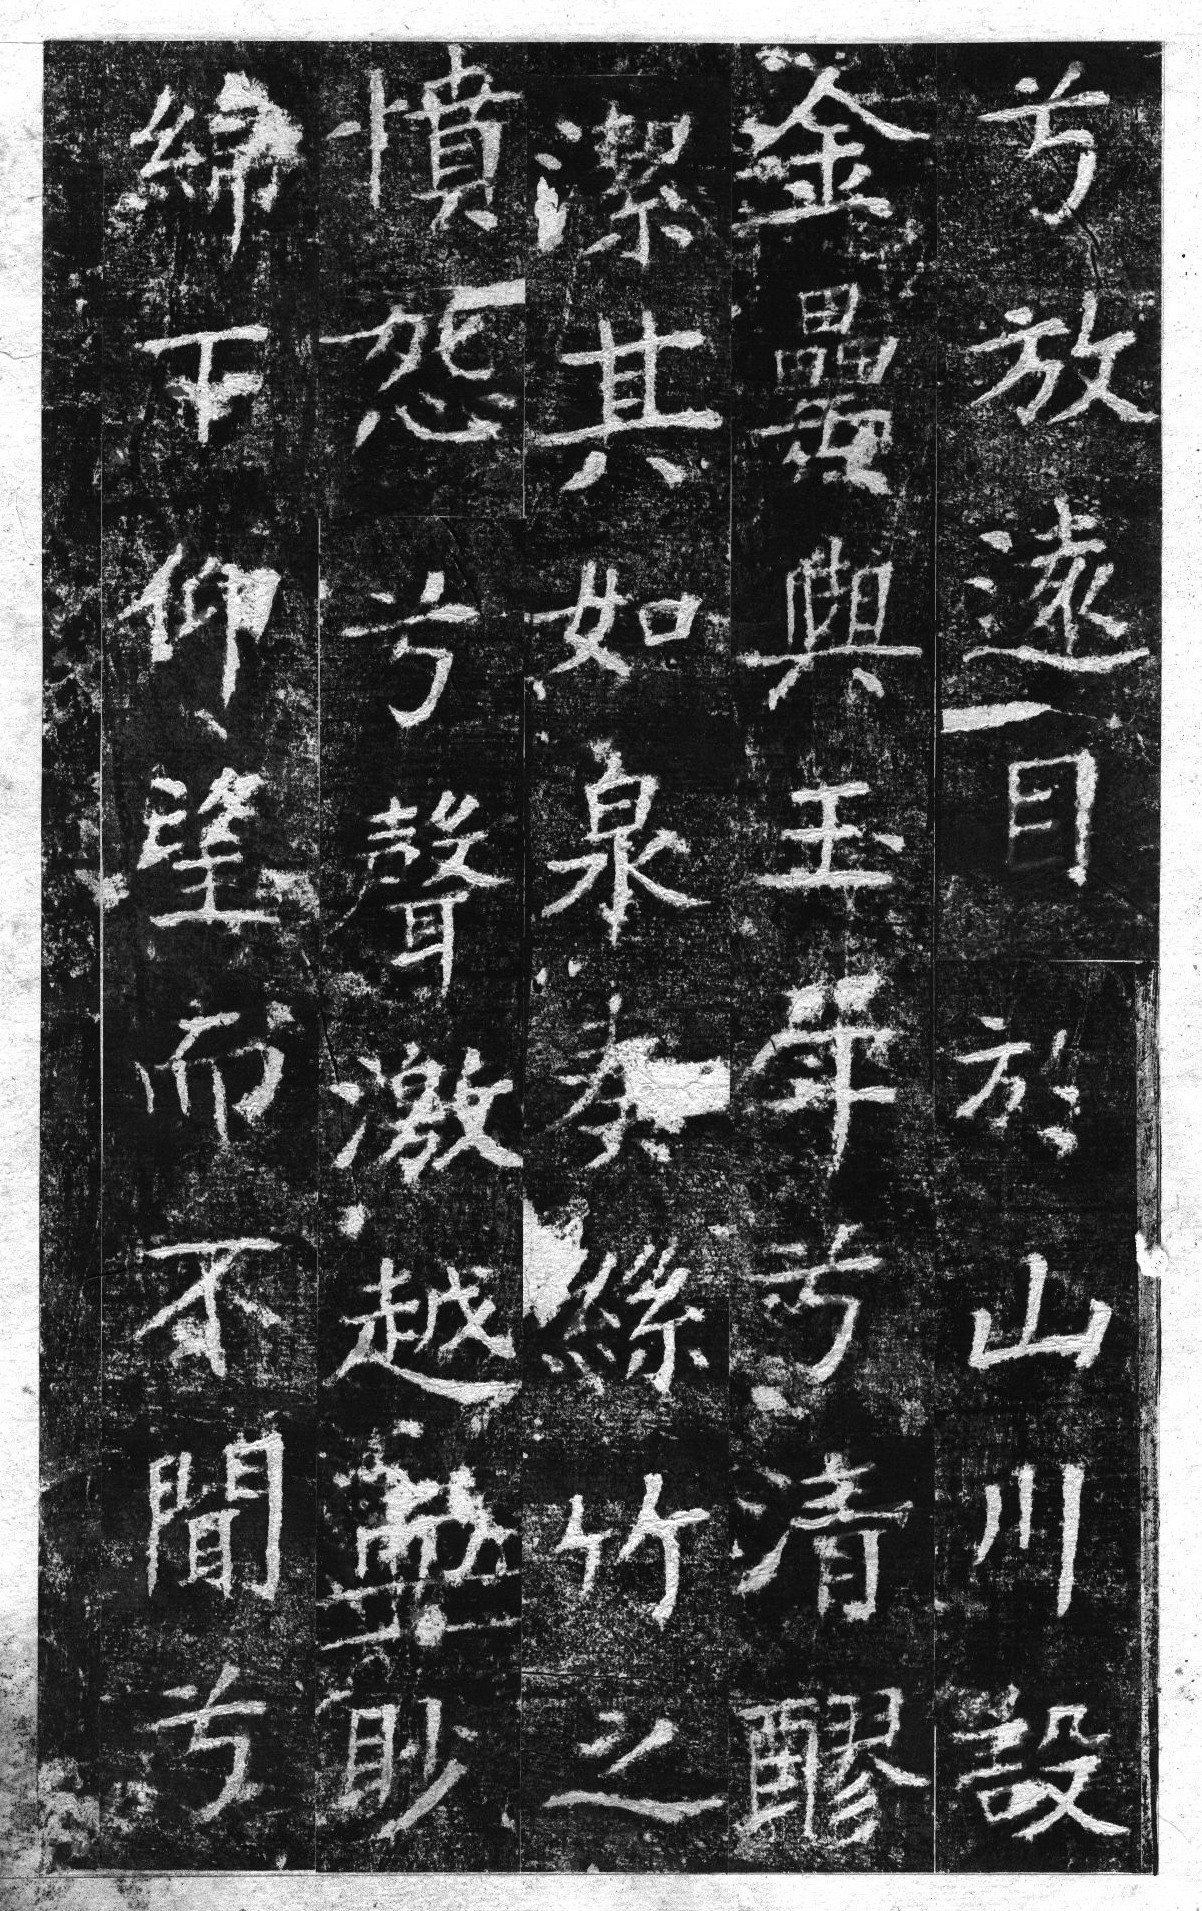 兮放遠目於山川設
金罍與玉兮清醪
潔其如泉奏絲竹之
憤怨兮聲激越眇
綿下仰望而不聞兮